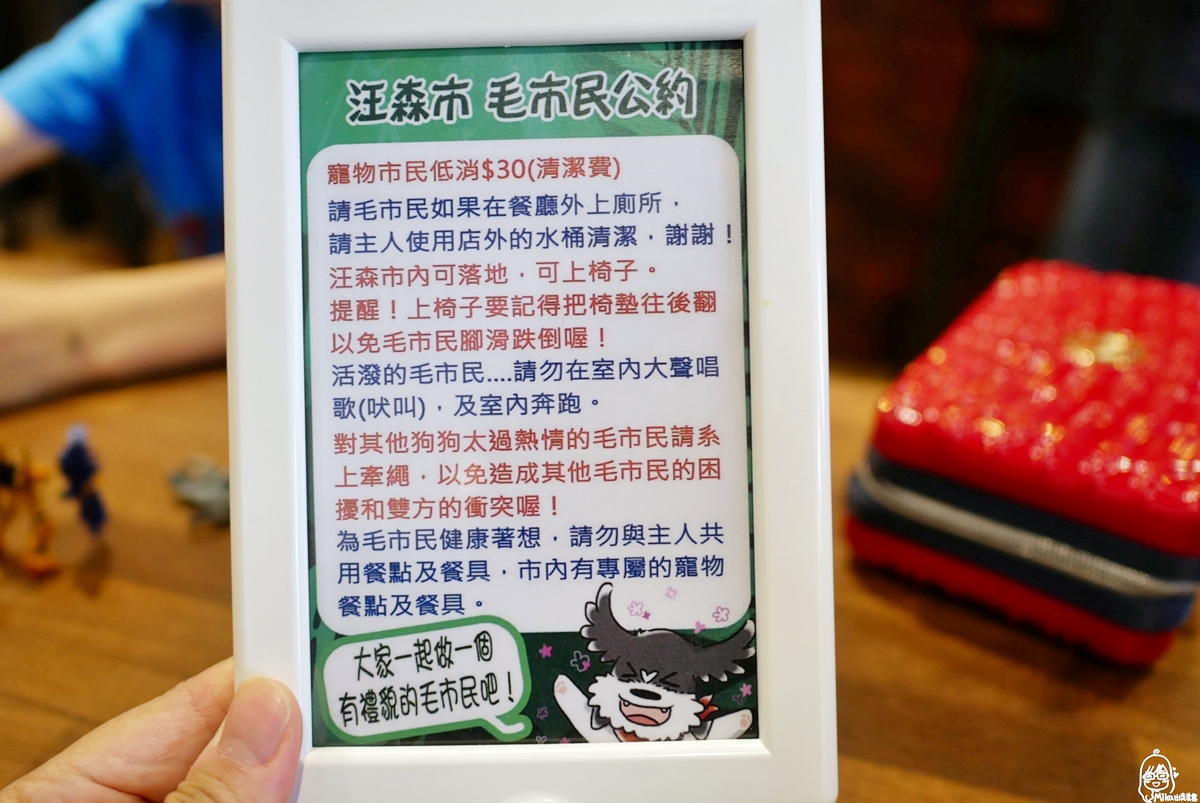 汪森市 毛市民公約
寵物市民低消$30(清潔費)
請毛市民如果在餐廳外上廁所，
請主人使用店外的水桶清潔，謝謝！
汪森市內可落地，可上椅子。
提醒！上椅子要記得把椅墊往後翻
以免毛市民腳滑跌倒喔！
活潑的毛市民....請勿在室內大聲唱
歌(吠叫)，及室內奔跑。
對其他狗狗太過熱情的毛市民請系
上牽繩，以免造成其他毛市民的困
擾和雙方的衝突喔！
為毛市民健康著想，請勿與主人共
用餐點及餐具，市內有專屬的寵物
餐點及餐具。
大家一起做一個
有禮貌的毛市民吧！